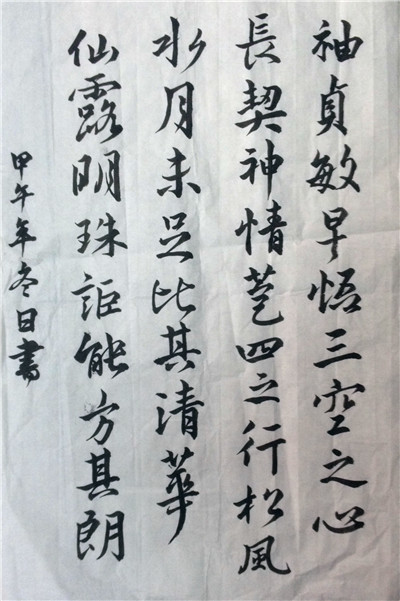 袖貞敏早悟三空之心
長契神情苞四之行松風
水月未足比其清華
仙露明珠詎能方其朗
甲午年冬日書